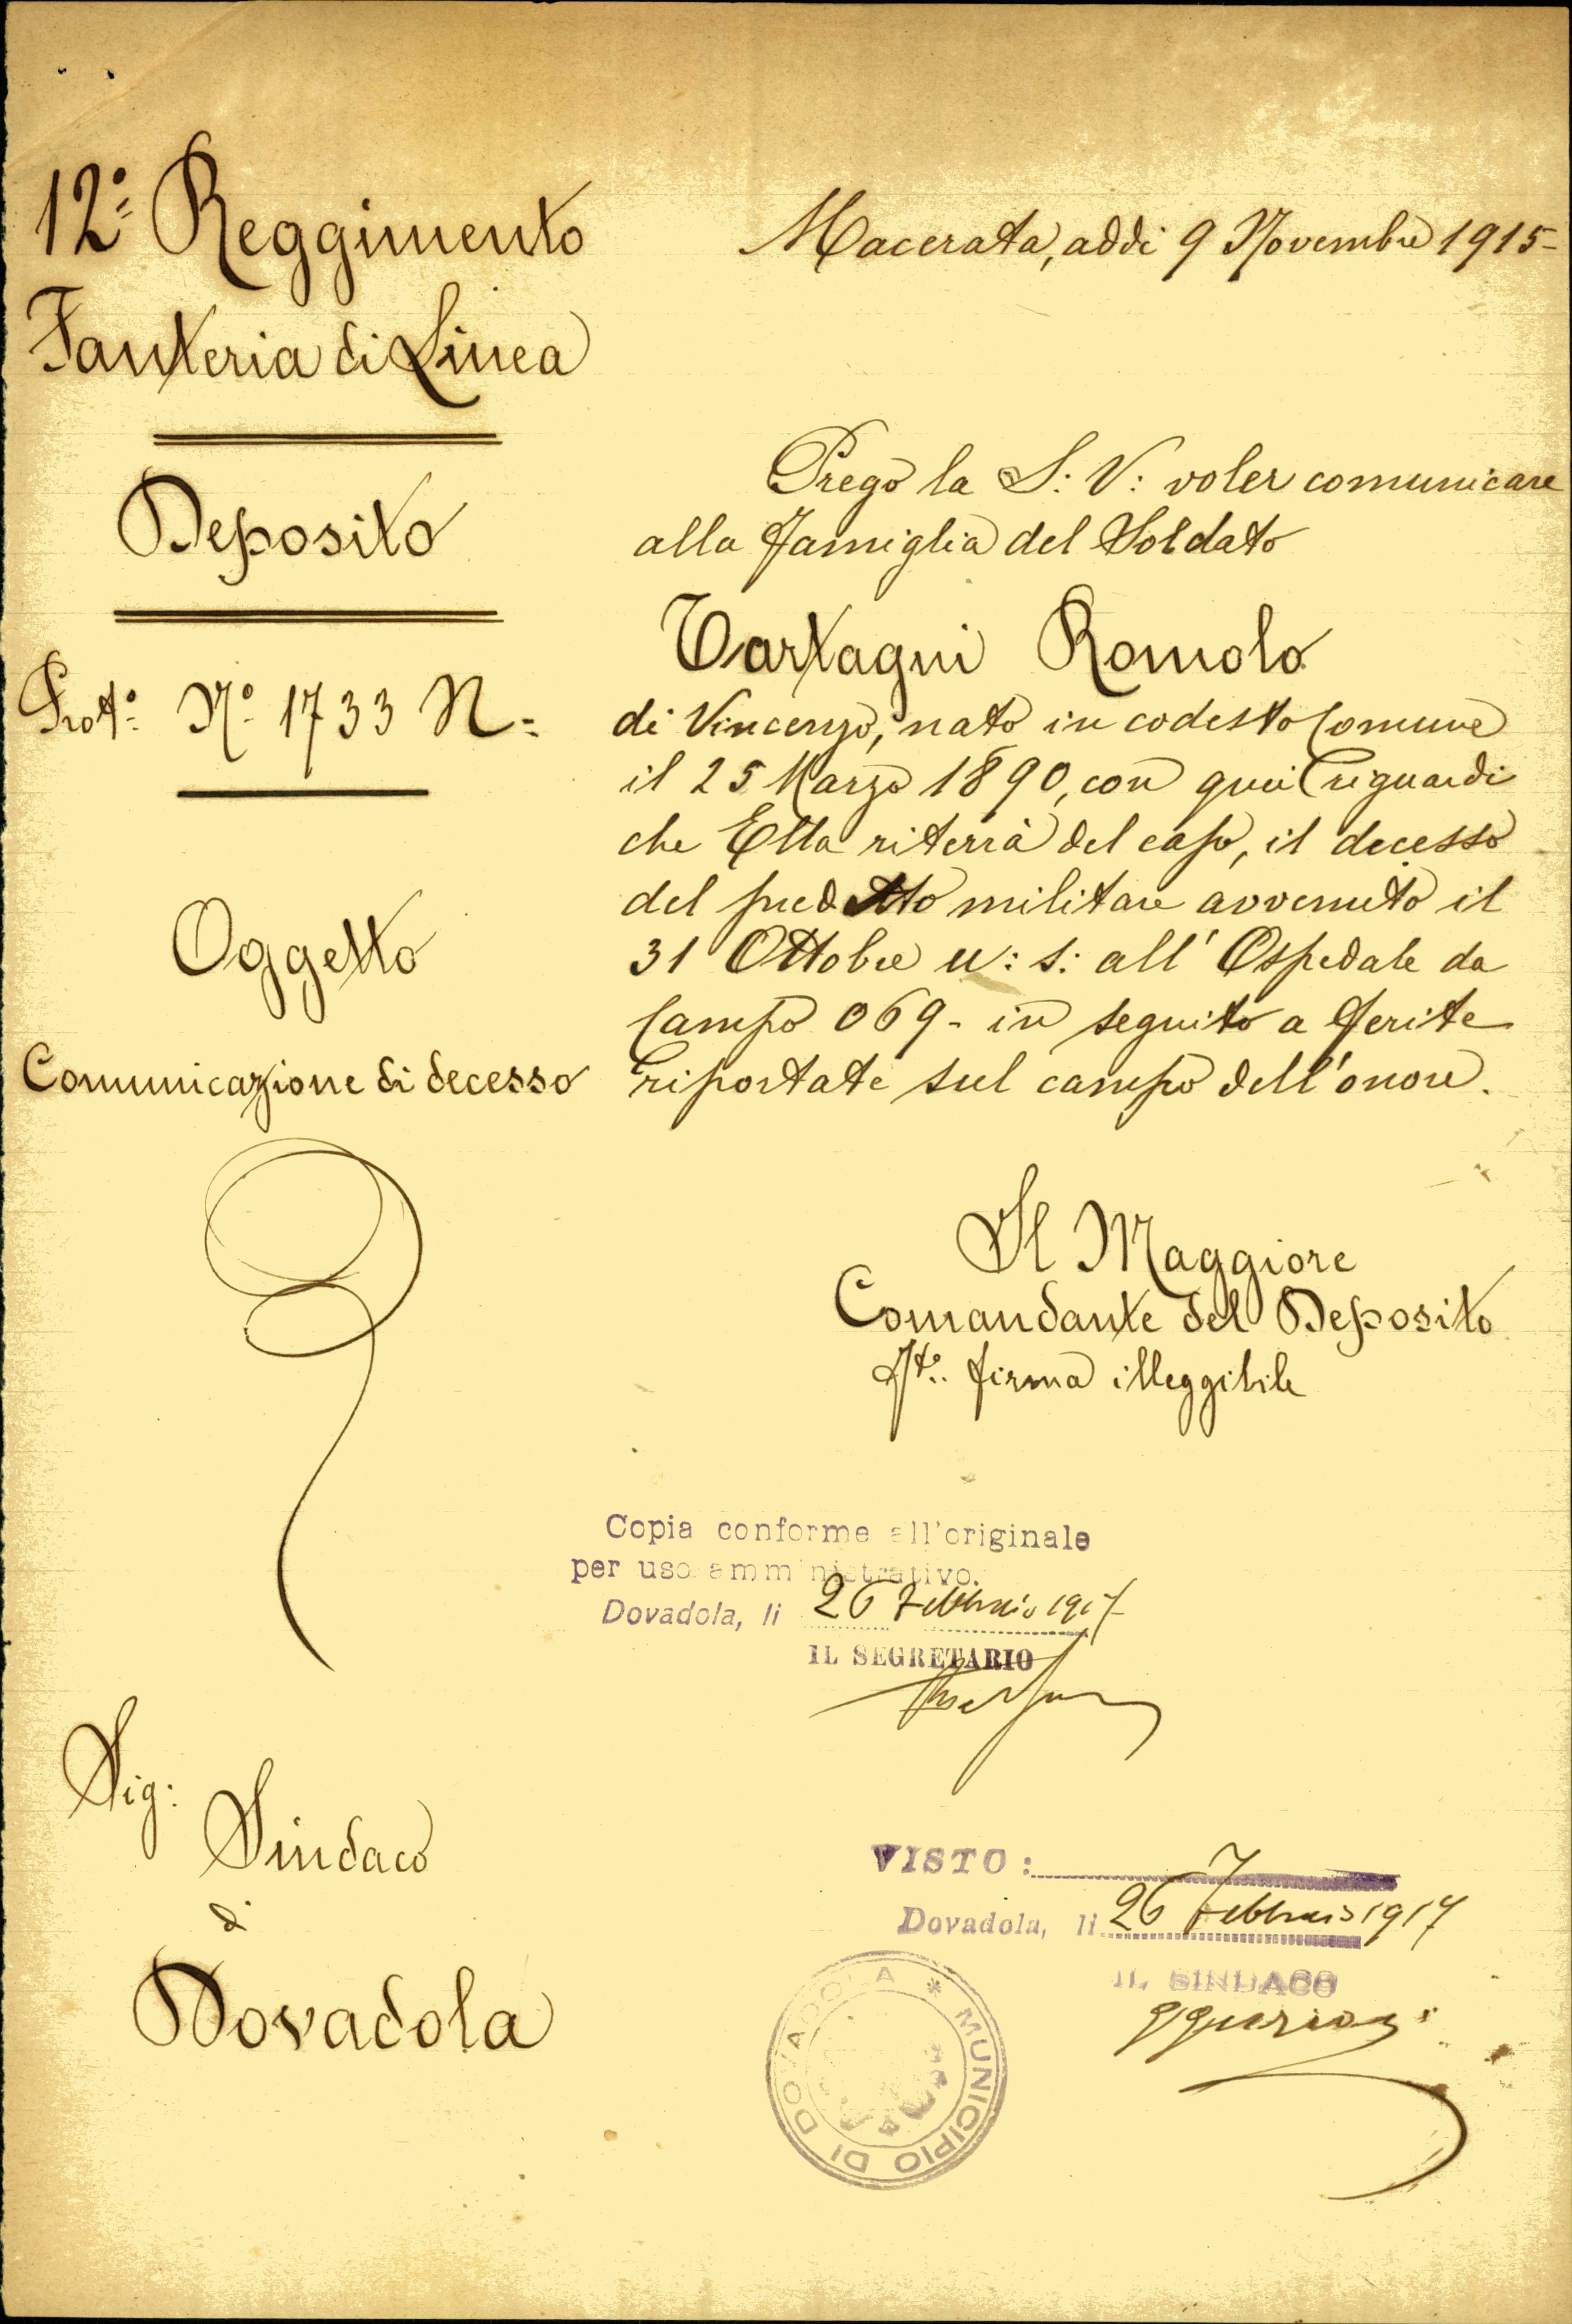 12º Reggimento
Fanteria di Linea
Deposito
Protº Nº 1733 N=
Oggetto
Comunicazione di decesso
Macerata, addi 9 Novembre 1915-
Prego la S: V: voler comunicare
alla famiglia del Soldato
Tartagni Romolo
di Vincenzo, nato in codesto Comune
il 25 Marzo 1890, con quei riguardi
che Ella riterrà del caso, il decesso
del predetto militare avvenuto il
31 Ottobre u: s: all' Ospedale da
Campo 069 - in seguito a ferite
riportate sul campo dell'onore.
Il Maggiore
Comandante del Deposito
Fto: firma illeggibile
Copia conforme all'originale
per uso amministrativo.
Dovadola, li 26 Febbraio 1917
IL SEGRETARIO
Sig:
Sindaco
di
Dovadola
VISTO:
Dovadola, li 26 Febbraio 1917
IL SINDACO
MUNICIPIO DI DOVADOLA *